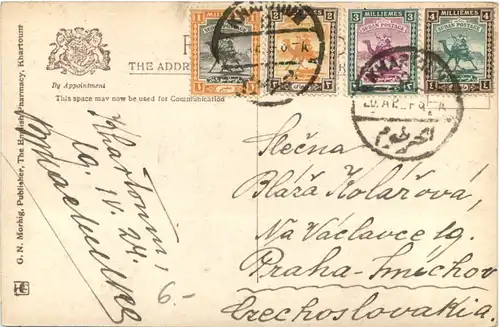 1 MILLIEMES 1
SUDAN POSTAGE
2 MILLIEMES 2
3 MILLIEMES 3
SUDAN POSTAGE
4 MILLIEMES 4
SUDAN POSTAGE
KHARTOUM
الخرطوم
THE ADDRE
By Appointment
This space may now be used for Communication
G. N. Morhig, Publisher, The English Pharmacy, Khartoum
Khartoum,
19. IV. 24.
6.-
Slečna
Bláža Kolářová,
Na Václavce 19.
Praha-Smíchov
Czechoslovakia.